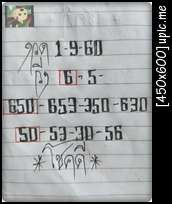 งวด 1-9-60
วิ่ง 6-5-
650-653-350-630
50-53-30-56
*โชคดี*
[450x600] upic.me